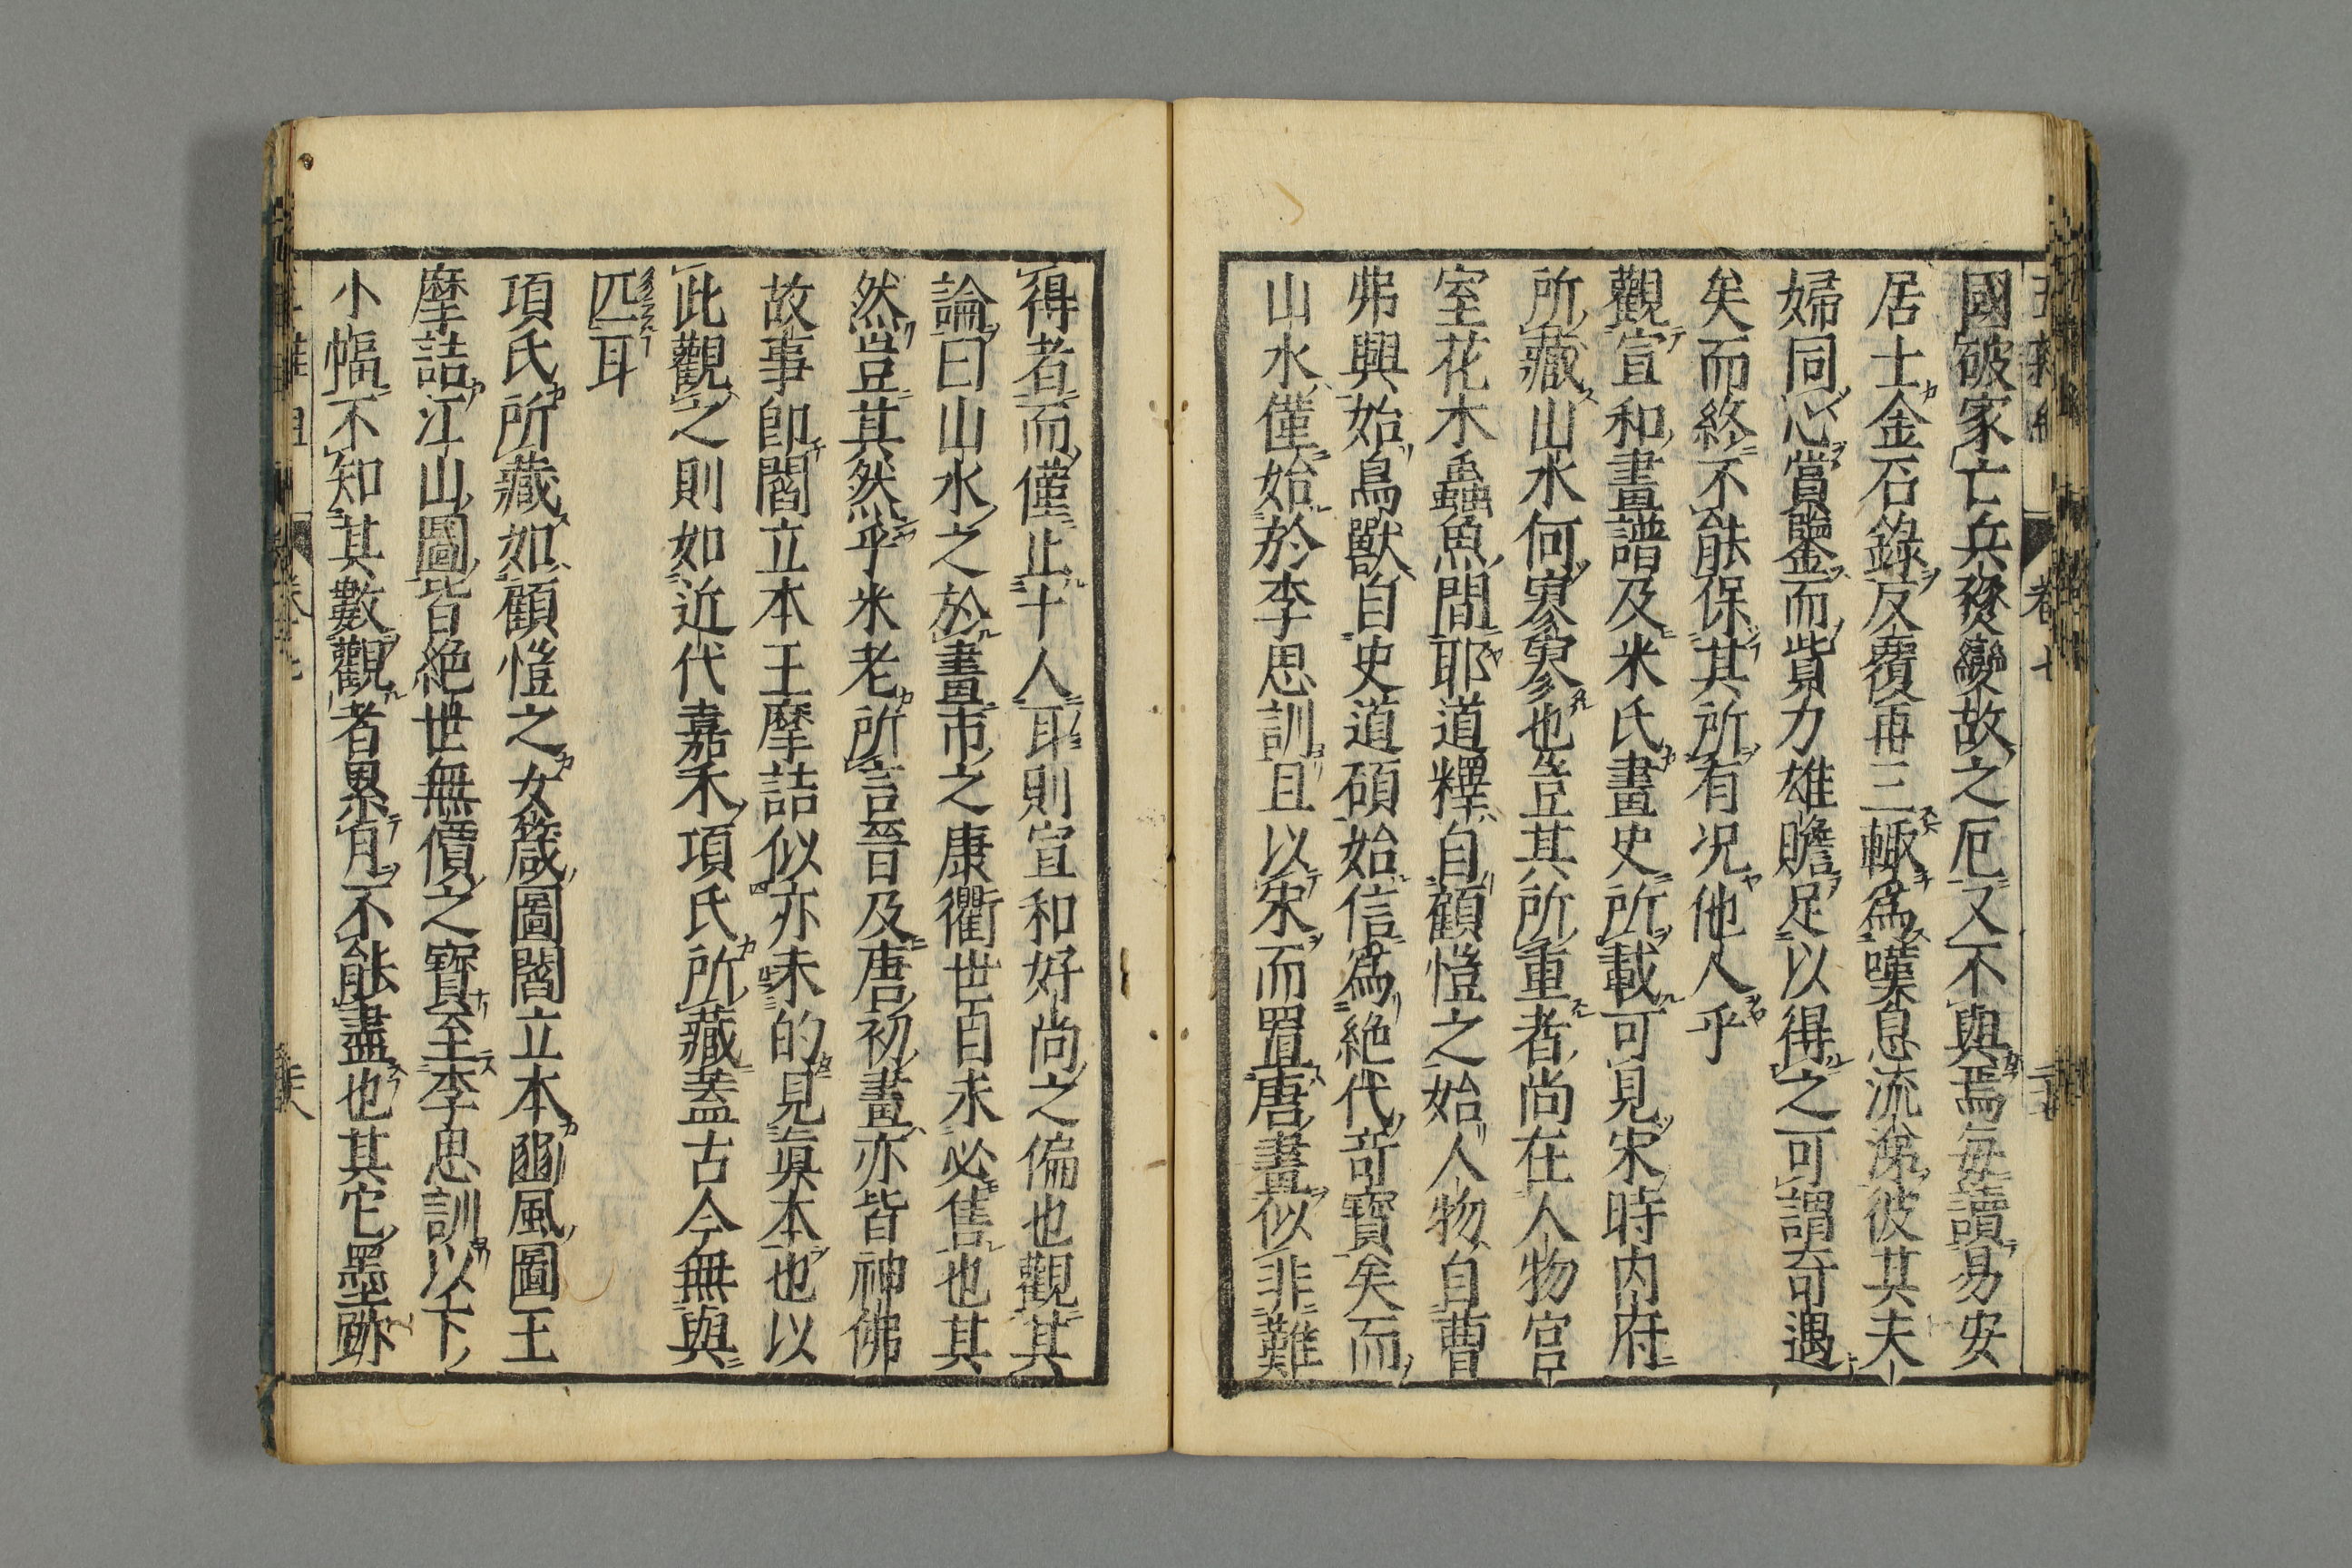 國破家亡兵燹變故之厄又不與焉每讀易安
居士金石錄反覆再三輙爲嘆息流涕彼其夫
婦同心賞鑒而貲力雄贍足以得之可謂奇遇
矣而終不能保其所有况他人乎
觀宣和畫譜及米氏畫史所載可見宋時内府
所藏山水何寥寥也豈其所重者尚在人物宫
室花木蟲魚間耶道釋自顧愷之始人物自曹
弗興始鳥獸自史道碩始信爲絶代竒寶矣而
山水僅始於李思訓且以宋而置唐畫似非難
得者而僅止十人耳則宣和好尚之偏也觀其
論曰山水之於畫市之康衢世目未必售也其
然豈其然乎米老所言晉及唐初畫亦皆神佛
故事卽閻立本王摩詰似亦未的見眞本也以
此觀之則如近代嘉禾項氏所藏葢古今無與
匹耳
項氏所藏如顧愷之女箴圖閻立本豳風圖王
摩詰江山圖皆絶世無價之寶至李思訓以下
小幅不知其數觀者累月不能盡也其它墨跡
卷七